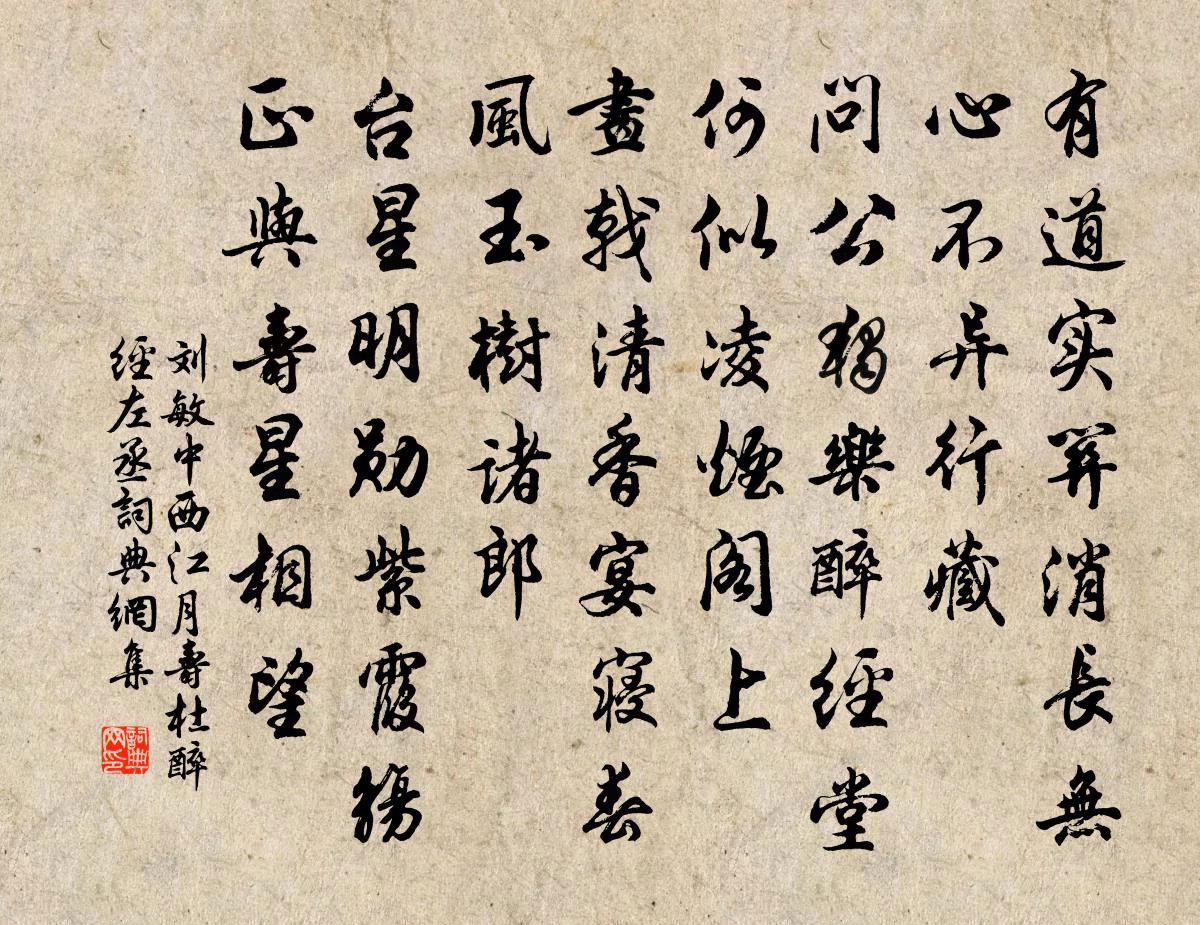 有道实关消長無
心不异行藏
問公獨樂醉經堂
何似凌煙閣上
畫戟清香宴寝春
風玉樹諸郎
台星明勋紫霞觴
正與壽星相望
刘敏中西江月壽杜醉
經左丞詞典網集
詞典
网印